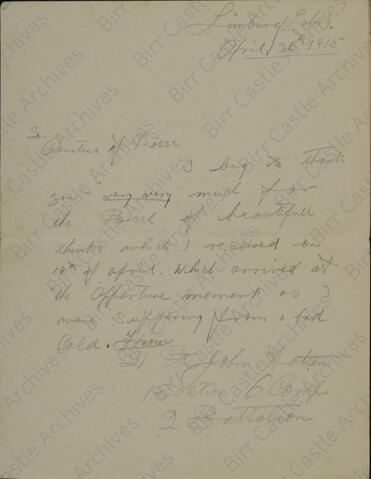 Limburg Lahn.
April 26th 1915
To
Countess of Rosse
I beg to thank
you very very much for
the Parsel of beautifull
things which I received on
19th of april. Which arrived at
the oppertune moment as I
was suffering from a bad
Cold. From
John
Section 6 Comp
2 Battalion
Birr Castle Archives